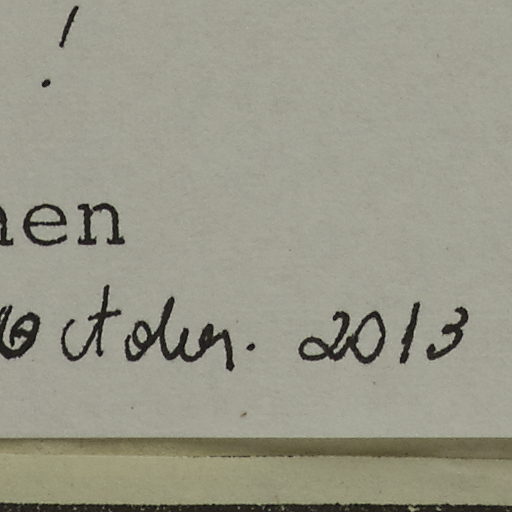 !
nen
October. 2013